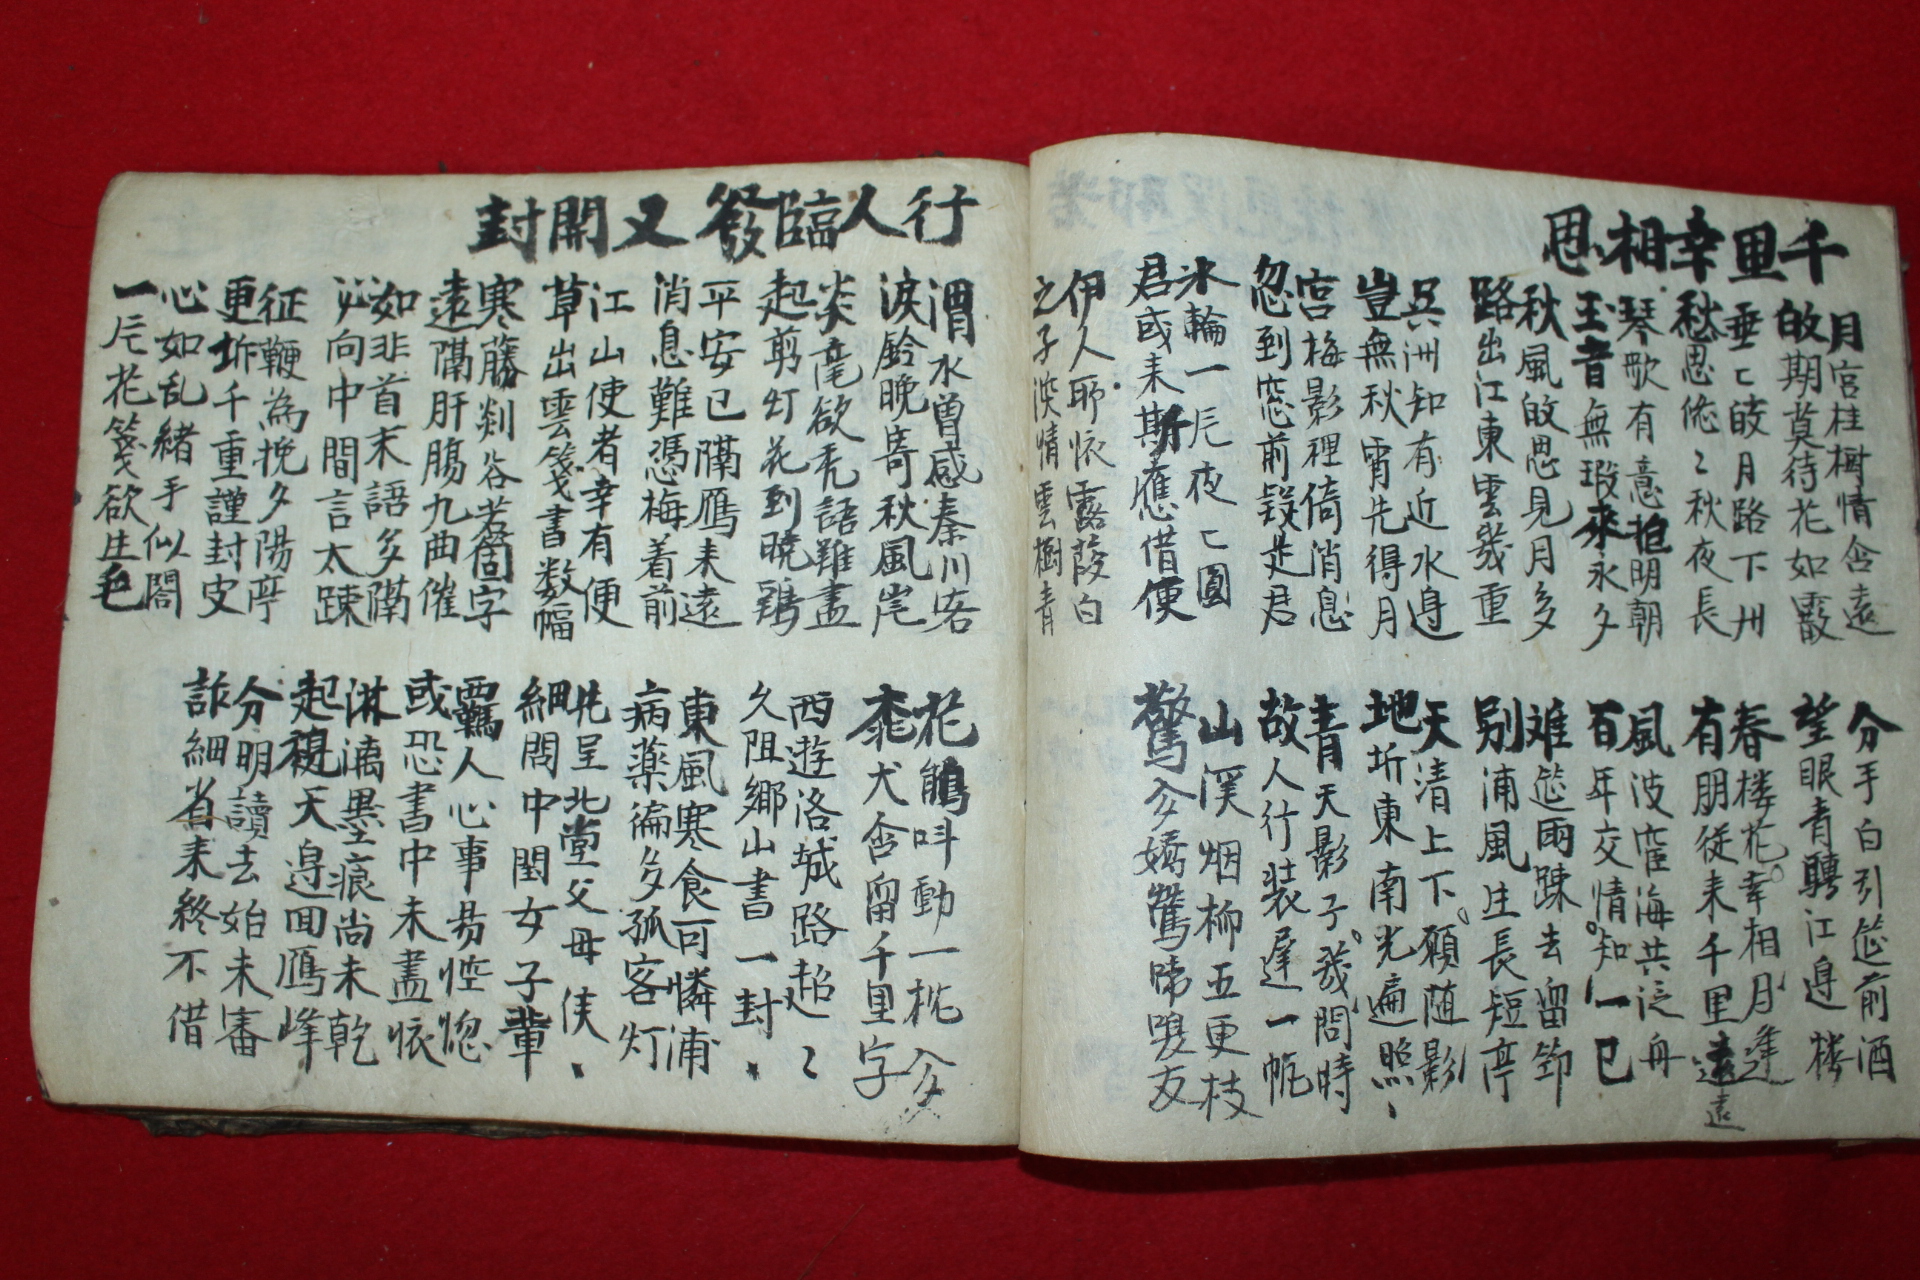 千里幸相思
月宮桂樹情含遠
故期莫待花如霰
垂〻皎月路下州
愁思悠〻秋夜長
琴歌有意抱明朝
玉音無瑕來永夕
秋風故思見月多
路出江東雲幾重
吳洲知有近水邊
豈無秋宵先得月
宮梅影裡倚消息
忽到窓前疑是君
氷輪一片夜〻圓
君或來斯應借便
伊人所懷露葭白
之子深情雲樹青
分手白引送前酒
望眼青騁江邊樓
春楼花幸相月逢
有朋從來千里遠
風波宦海共泛舟
百年交情知一己
难送雨踈去留節
别浦風生長短亭
天清上下願随影
地圻東南光遍照
青天影子幾問時
故人行裝遲一帆
山溪烟柳五更枝
驚分嬌鶯啼嘤友
行人臨發又開封
渭水曾感秦川客
淚鈴晚寄秋風岸
炎毫欲禿語難盡
起剪灯花到曉鷄
平安已隔雁来遠
消息難憑梅着前
江山使者幸有便
草出雲箋書数幅
寒藤剡谷若個字
遠隔肝腸九曲催
如非首末語多隔
必向中間言太踈
征鞭為挽夕陽亭
更坼千重謹封皮
心如乱緒手似閣
一片花箋欲生毛
花鵑呌動一枕分
尨犬含留千里字
西遊洛城路超〻
久阻鄉山書一封
東風寒食可憐浦
病藥徧多孤客灯
先呈北堂父母侯
細問中閨女子輩
覊人心事易悾惚
或恐書中未盡懷
淋漓墨痕尚未乾
起視天邊回雁峰
分明讀去始未審
詐細省来終不借